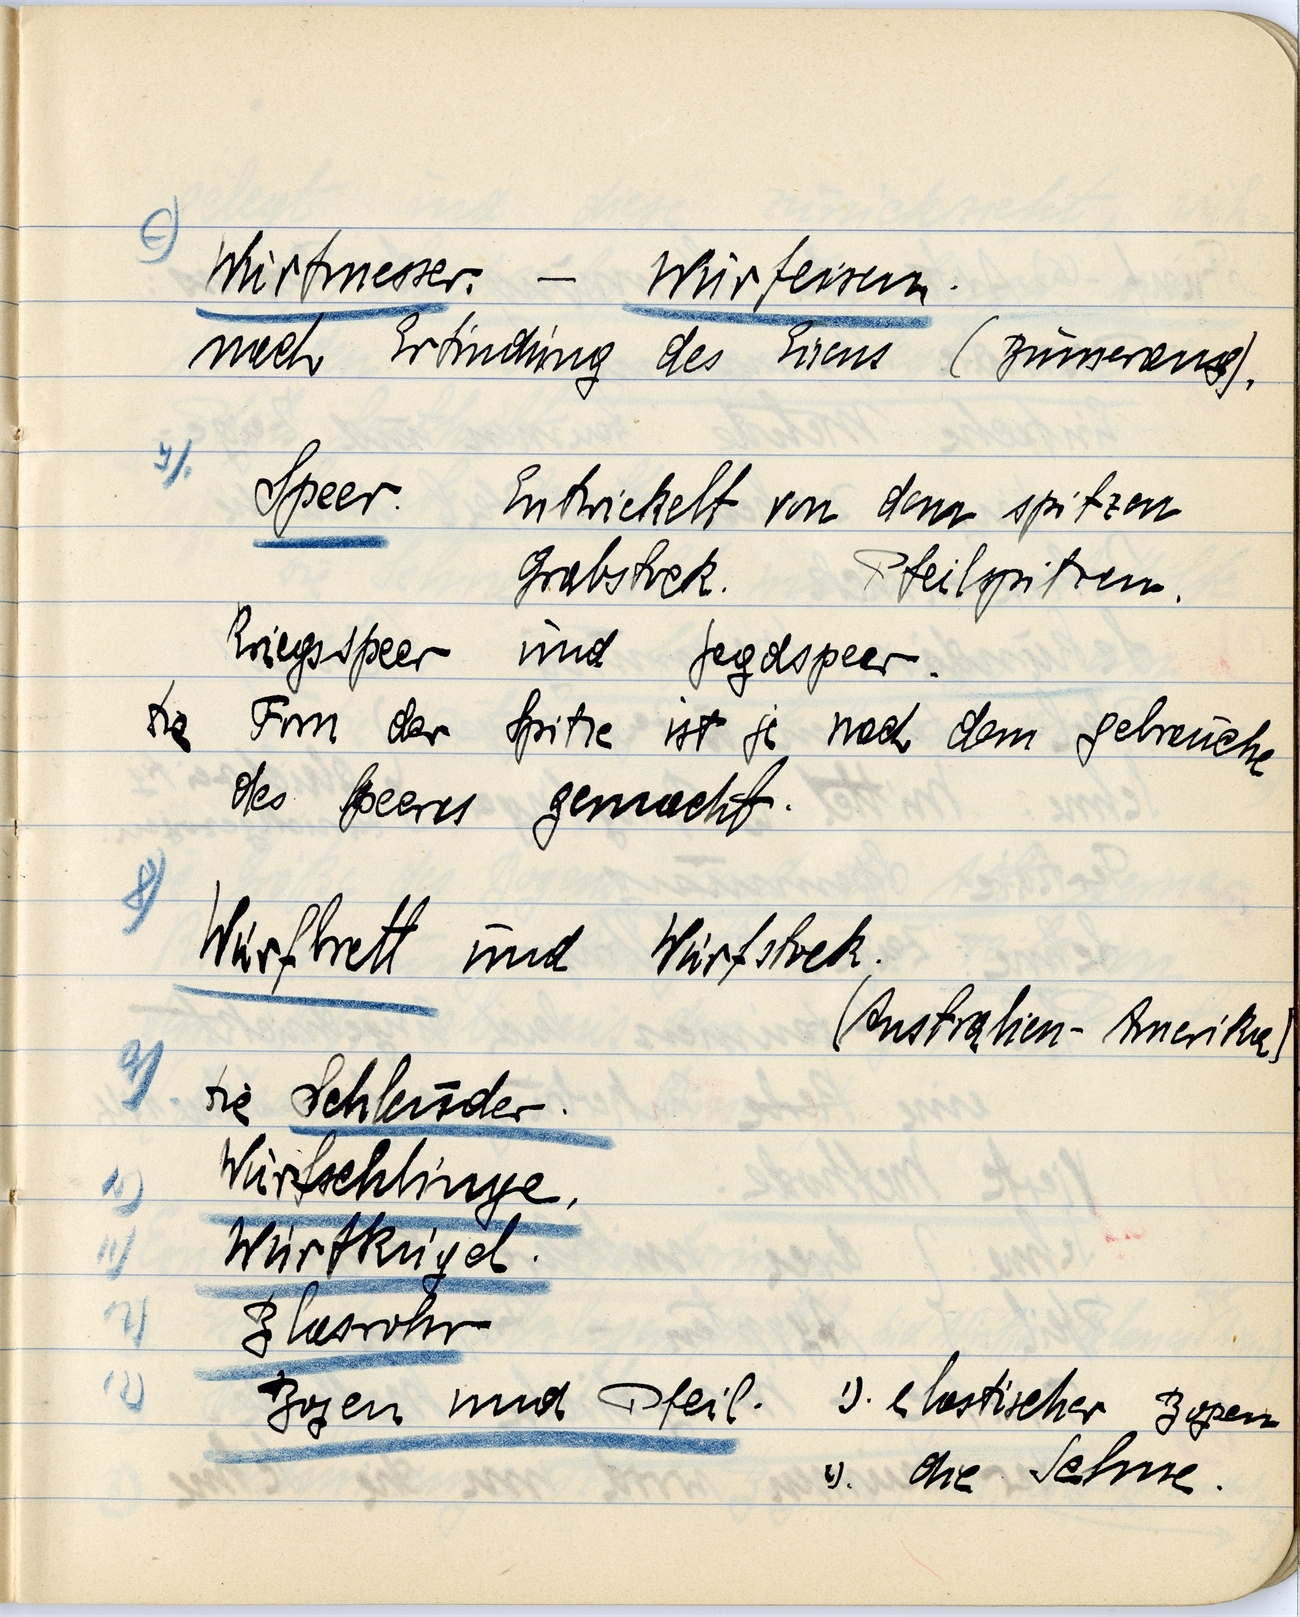 Wurfmesser. — Wurfeisen.
nach Erfindung des Eisens (Bumerang).
Speer. Entwickelt von dem spitzen
Grabstock. Pfeilspitzen.
Kriegsspeer und Jagdspeer.
die Form der Spitze ist je nach dem gebrauche
des Speeres gemacht.
8) Wurfbrett und Wurfstock.
(Australien - Amerika)
die Schleuder.
Wurfschlinge,
11) Wurfkugel.
12) Blasrohr
Bogen und Pfeil. 1). elastischer Bogen
2). die Sehne.